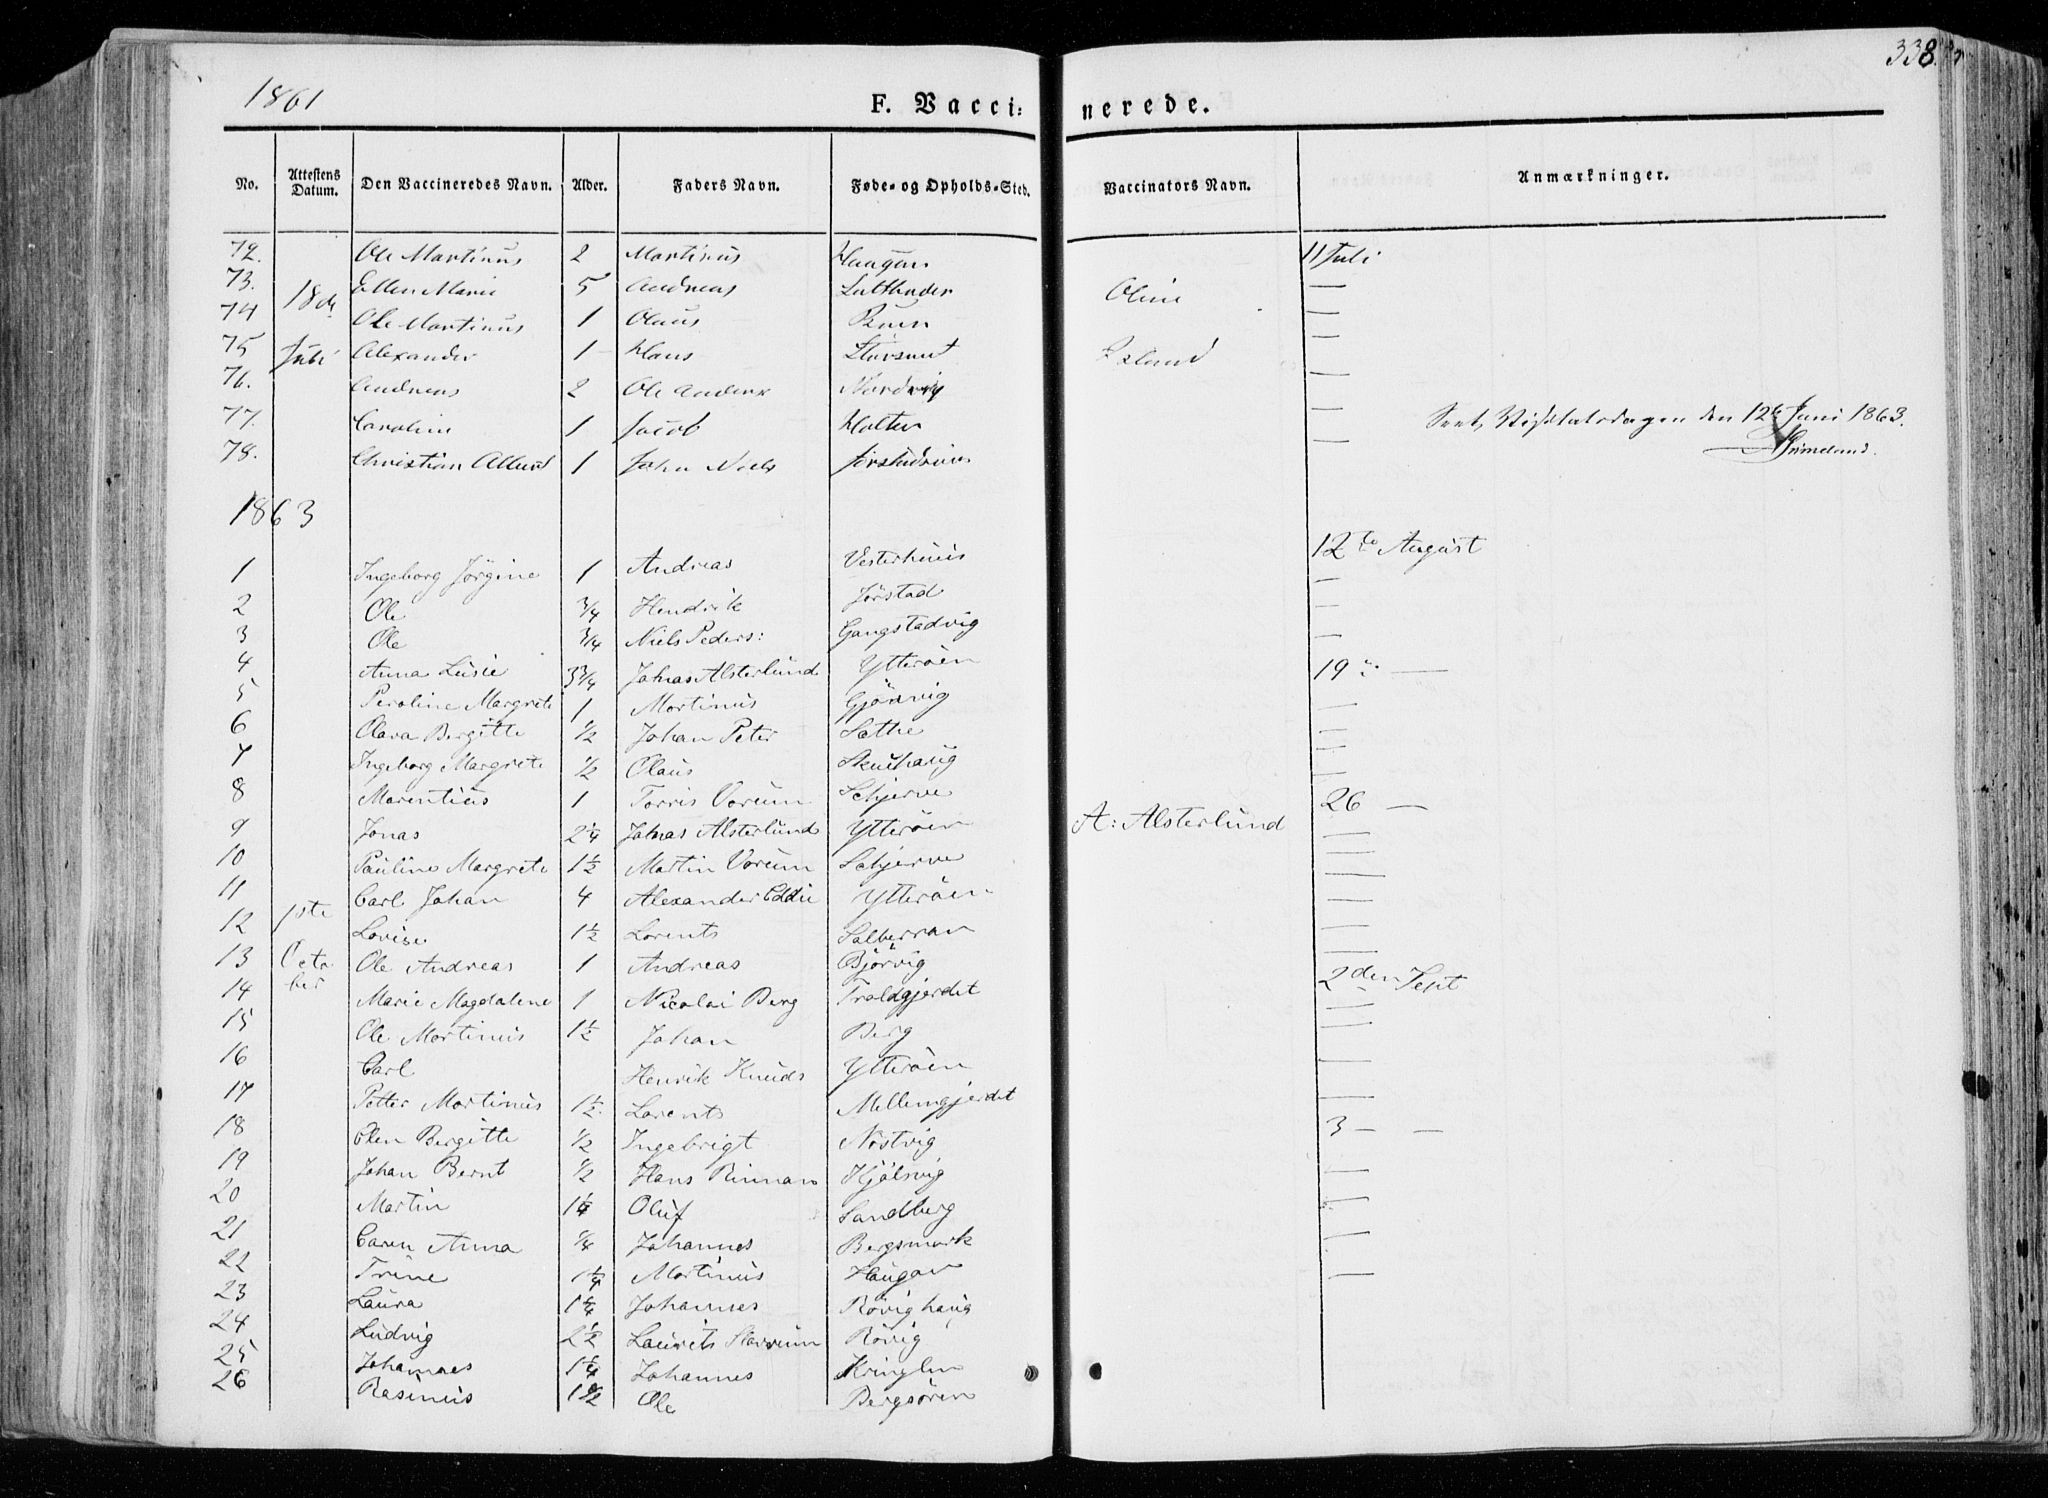 1861
F. Vacci: nerede.
338.
No. Attestens Datum. Den Vaccineredes Navn. Alder. Faders Navn. Føde- og Opholds-Sted. Vaccinators Navn. Anmærkninger.
72. Ole Martinus 2 Martinus Haugan 11 Juli
73. Ellen Marie 5 Andreas — 
74 18de Ole Martinus 1 Olaus Oline —
75 Juli Alexander 1 Hans —
76. Andreas 2 Ole Anders Nordvig —
77. Caroline 1 Jacob Holten — den 12 Juni 1863.
78. Christian 1 John Niels —
1863
1 Ingeborg Jörgine 1 Andreas Vesterhuus 12te August
2 Ole 3/4 Hendrik Jörstad —
3 Ole 3/4 Niels Peders: Gangstadvig —
4 Anna Lusie 3 3/4 Johas Alsterlund Ytteröen 19 —
5 Peroline Margrete 1 Martinus Gjörvig —
6 Olava Bergitte 1/2 Johan Peter —
7 Ingeborg Margrete 1/2 Olaus —
8 Marentius 1 Torris Vorum Schjerve 26 —
9 Jonas 2 1/4 Johas Alsterlund Ytteröen A: Alsterlund —
10 Pauline Margrete 1 1/2 Martin Vorum Schjerve —
11 Carl Johan 4 Alexander Eddie Ytteröen —
12 1ste Lovise 1 1/2 Lorents Salberran —
13 Octo Ole Andreas 1 Andreas Björvig —
14 ber Marie Magdalene 1 Nicolai Berg Troldgjerdet 2den Sept
15 Ole Martinus 1 1/2 Johan Berg —
16 Carl Henrik Knuds Ytteröen —
17 Petter Martinus 1 1/2 Lorents Mellemgjerdet —
18 Elen Bergitte 1/2 Ingebrigt Nöstvig 3 — —
19 Johan Bernt 1/2 Hans Rinnan Hjälsvig —
20 Martin 1 1/4 Oluf Sandberg —
21 Caren Anna 1/4 Johannes Bergsmark —
22 Trine 1 1/4 Martinus Haugan —
23 Laura 1 1/4 Johannes Rövig haug
24 Ludvig 2 1/2 Laurits Rövig
25 Johannes 1 1/4 Johannes Kringlen
26 Rasmus 1 1/2 Ole Bergsören